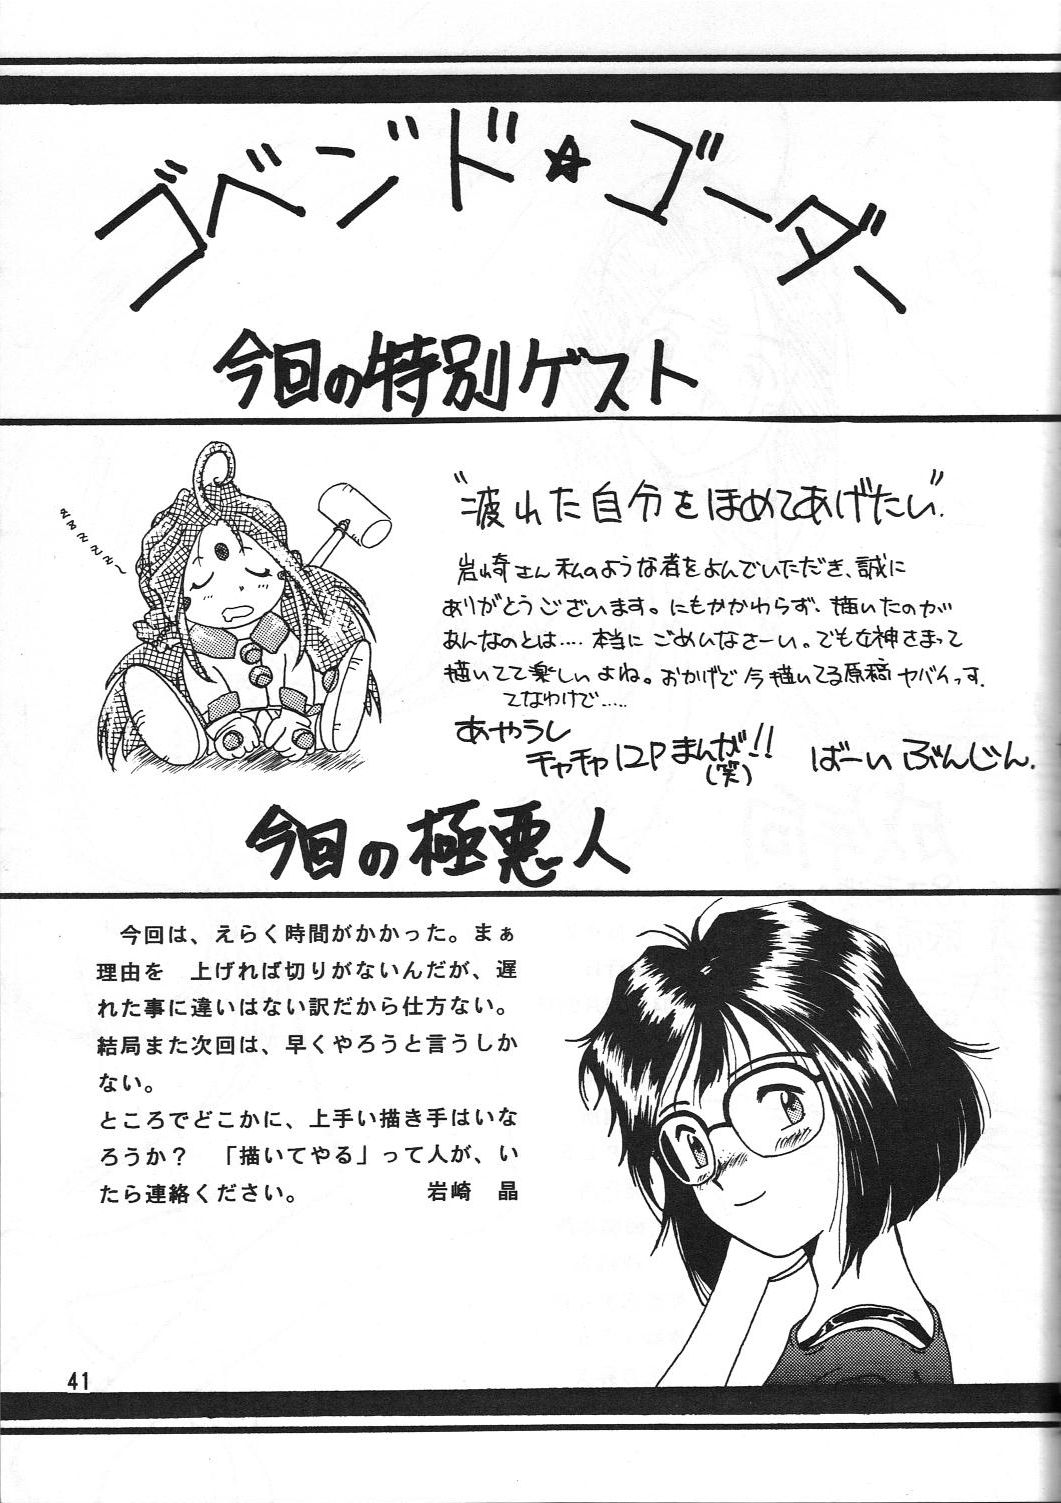 ゴベンド☆ゴーダー
今回の特別ゲスト
zzzzz〜
"波れた自分をほめてあげたい".
岩崎さん私のような者をよんでいただき、誠に
ありがとうございます。にもかかわらず、描いたのが
あんなのとは…. 本当にごめんなさーい。でも女神さまって
描いてて楽しいよね。おかげで今描いてる原稿ヤバイっす.
てなわけで…..
あやうし
チャチャ12Pまんが!! ばーい ぶんじん.
(笑)
今日の極悪人
今回は、えらく時間がかかった。まぁ
理由を 上げれば切りがないんだが、遅
れた事に違いはない訳だから仕方ない。
結局また次回は、早くやろうと言うしか
ない。
ところでどこかに、上手い描き手はいな
ろうか? 「描いてやる」って人が、い
たら連絡ください。 岩崎 晶
41